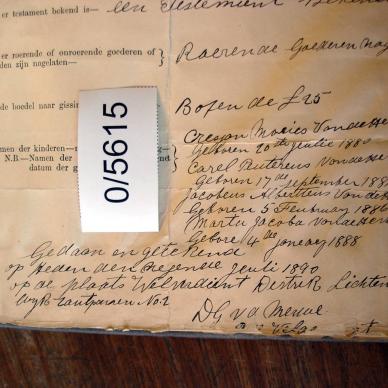 er testament bekend is—
een Testament Bekend
er roerende of onroerende goederen of
den zijn nagelaten—
Roerende Goederen nag
de boedel naar gissing
Boven de £25
men der kinderen—
N.B.—Namen der
datum der g
Moeies Vandeme
Geboren 20ste Julie 1880
Carel Vandeme
Geboren 17de September 188
Jacobus Albertus Vande
Geboren 5 February 1886
Marta Jacoba Vandeme
Gebore 4de Janeory 1888
0/5615
Gedaan en getekend
op heden den Julie 1890
op de plaats Welverdint Destrek Lichten
Wyk No. 2
D G v d Merwe